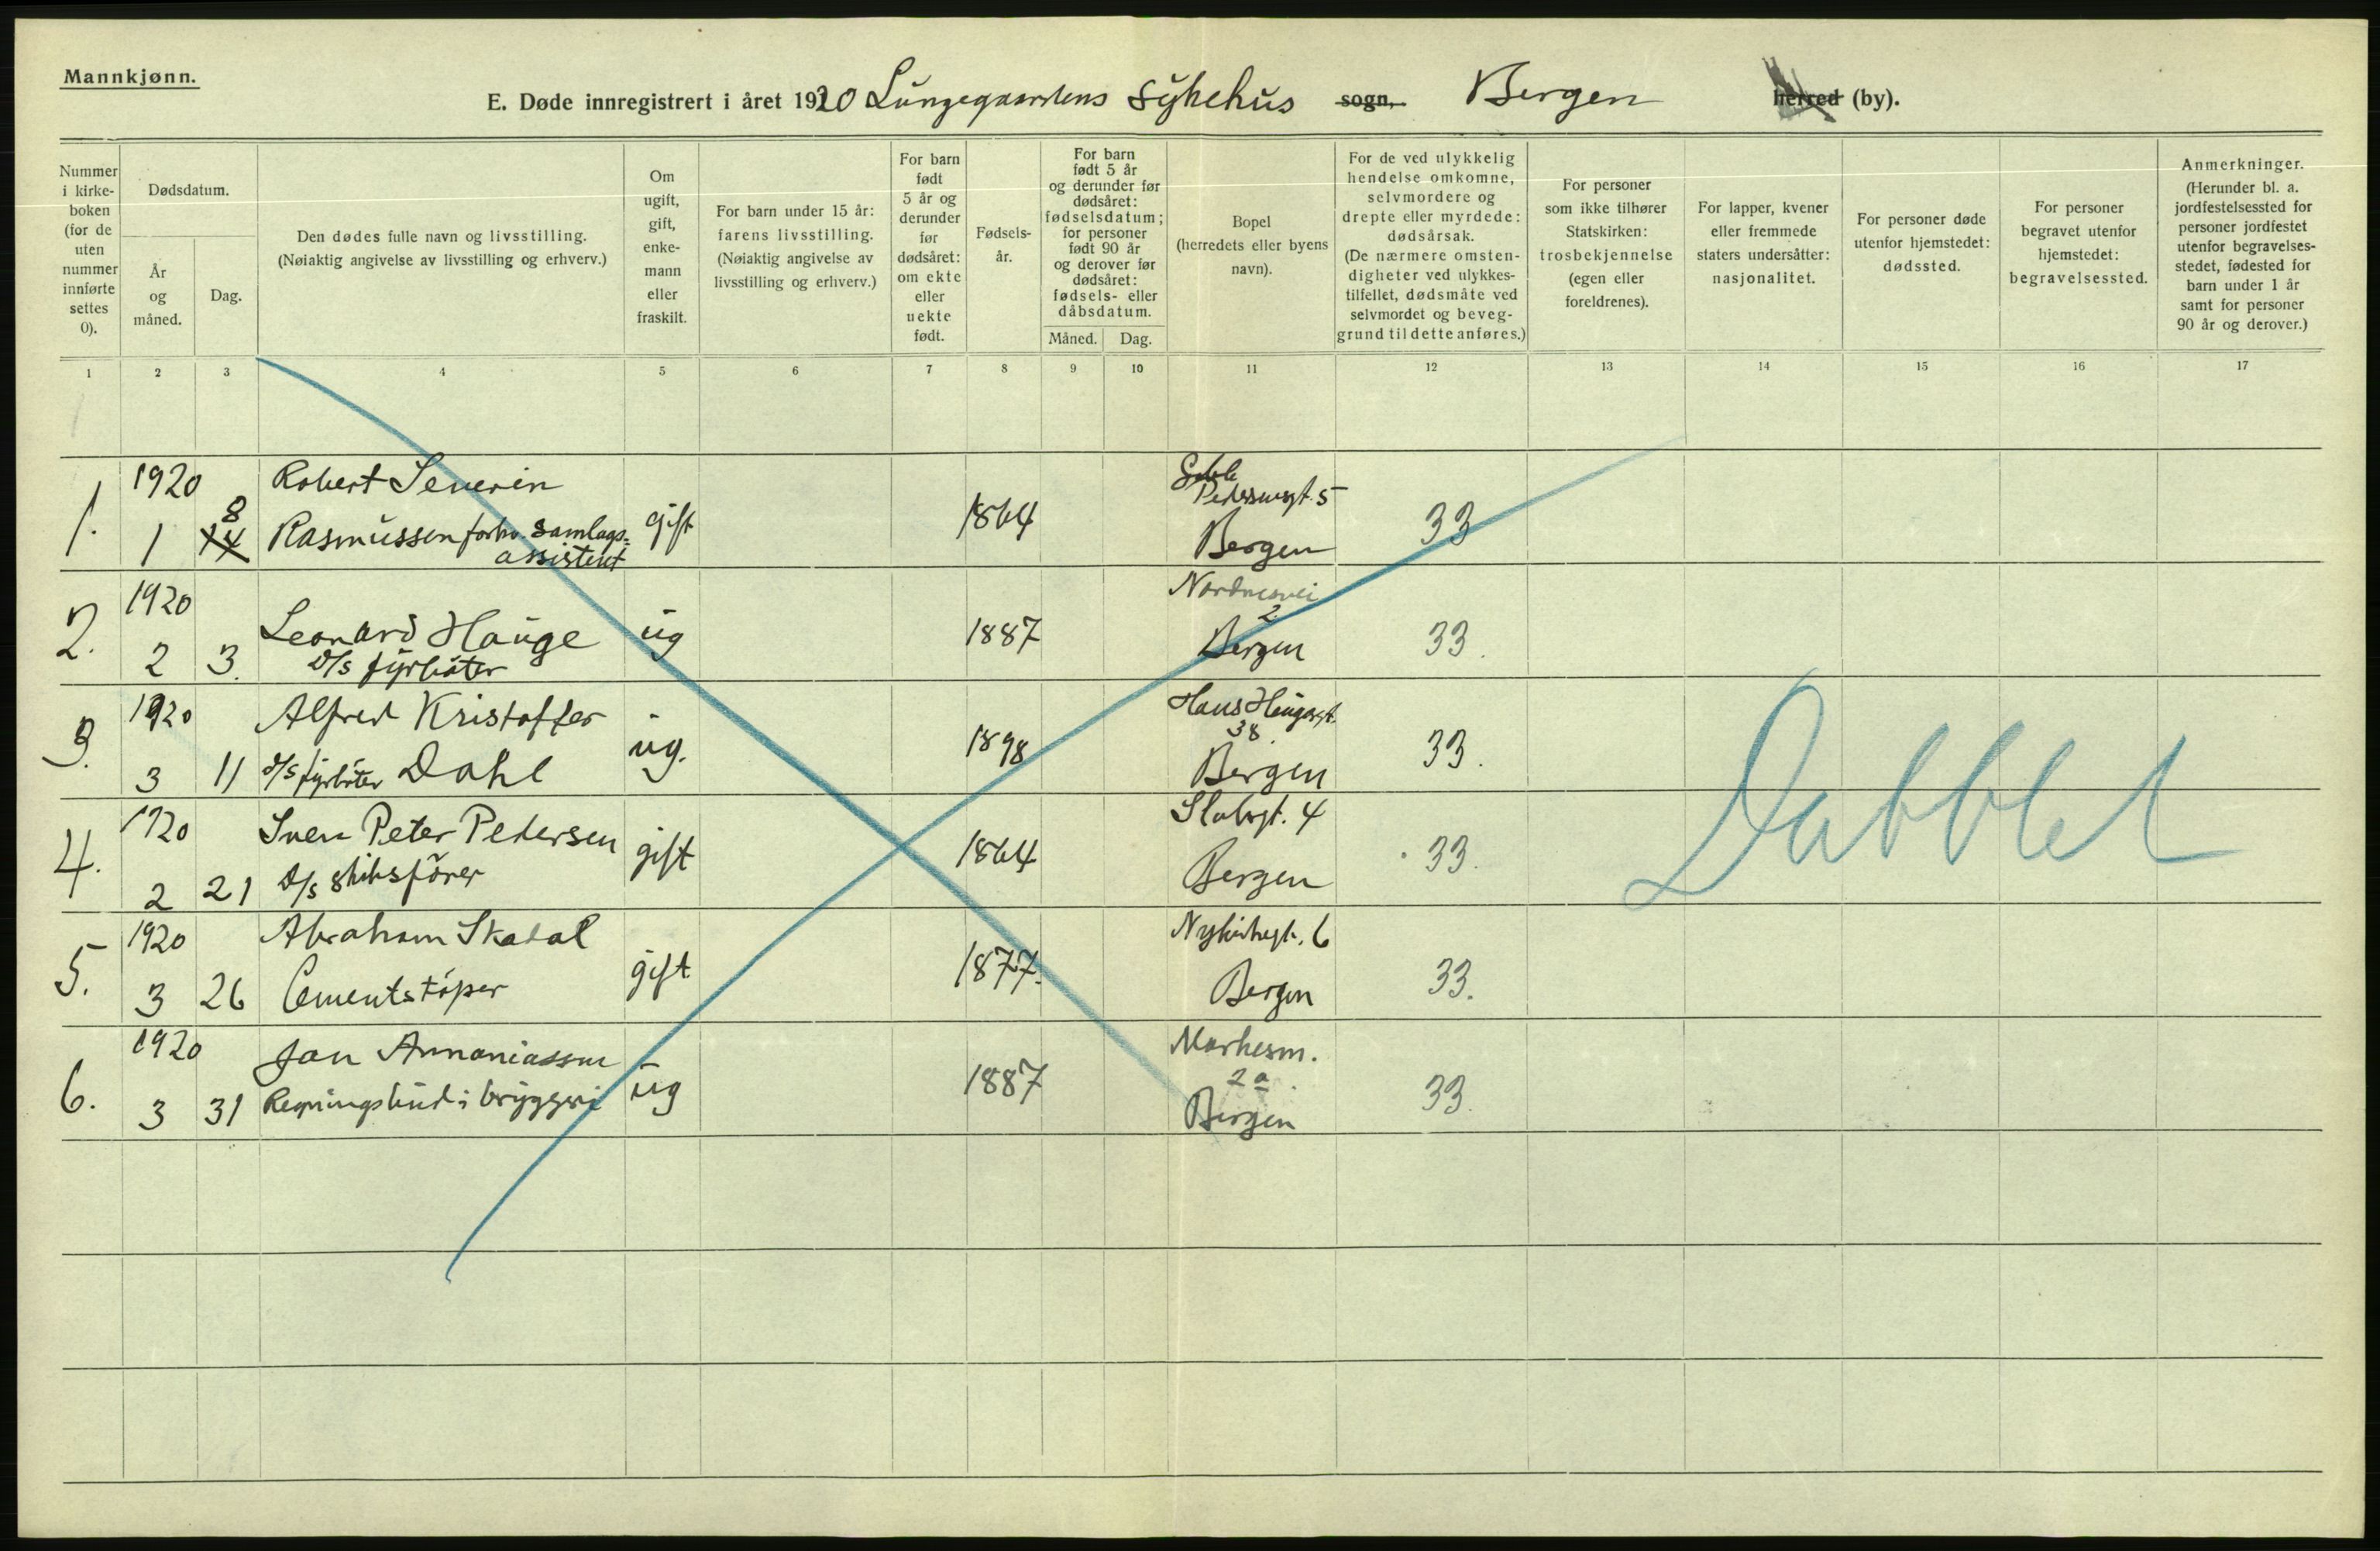 Mannkjønn.
E. Døde innregistrert i året 1920 Lungegaardens sykehus sogn, Bergen herred (by).
Nummer i kirke-boken (for de uten nummer innførte settes 0).
Dødsdatum.
År og måned.
Dag.
Den dødes fulle navn og livsstilling.
(Nøiaktig angivelse av livsstilling og erhverv.)
Om ugift, gift, enke-mann eller fraskilt.
For barn under 15 år: farens livsstilling.
(Nøiaktig angivelse av livsstilling og erhverv.)
For barn født 5 år og derunder før dødsåret: om ekte eller uekte født.
Fødsels-år.
For barn født 5 år og derunder før dødsåret: fødselsdatum; for personer født 90 år og derover før dødsåret: fødsels- eller dåbsdatum.
Måned.
Dag.
Bopel
(herredets eller byens navn).
For de ved ulykkelig hendelse omkomne, selvmordere og drepte eller myrdede: dødsårsak.
(De nærmere omsten-digheter ved ulykkes-tilfellet, dødsmåte ved selvmordet og beveg-grund til dette anføres.)
For personer som ikke tilhører Statskirken: trosbekjennelse (egen eller foreldrenes).
For lapper, kvener eller fremmede staters undersåtter: nasjonalitet.
For personer døde utenfor hjemstedet: dødssted.
For personer begravet utenfor hjemstedet: begravelsessted.
Anmerkninger.
(Herunder bl. a. jordfestelsessted for personer jordfestet utenfor begravelses-stedet, fødested for barn under 1 år samt for personer 90 år og derover.)
1 2 3 4 5 6 7 8 9 10 11 12 13 14 15 16 17
1920 Robert Severin Gable Pedersensgt. 5
1. 1 8 14 Rasmussen forhv. samlags= gift 1864 Bergen 33
assistent
1920 Nordnesvei
2. Leonard Hauge ug 1887 2
2 3. D/s fyrbøter Bergen 33.
1920 Alfred Kristoffer Hans Haugesgt.
3. ug. 1898 38.
3 11 d/s fyrbøter Dahl Bergen 33.
1920 Sven Peter Pedersen gift 1864 4
4. 2 21 D/s skibsfører Bergen 33.
1920 Abraham Skadal Nykirkegt. 6
5. 3 26 Cementstøper gift 1877. Bergen 33.
1920 Jan Annaniassen
6. 3 31 i bryggeri ug 1887 2 a.
Bergen 33.
Dabblet